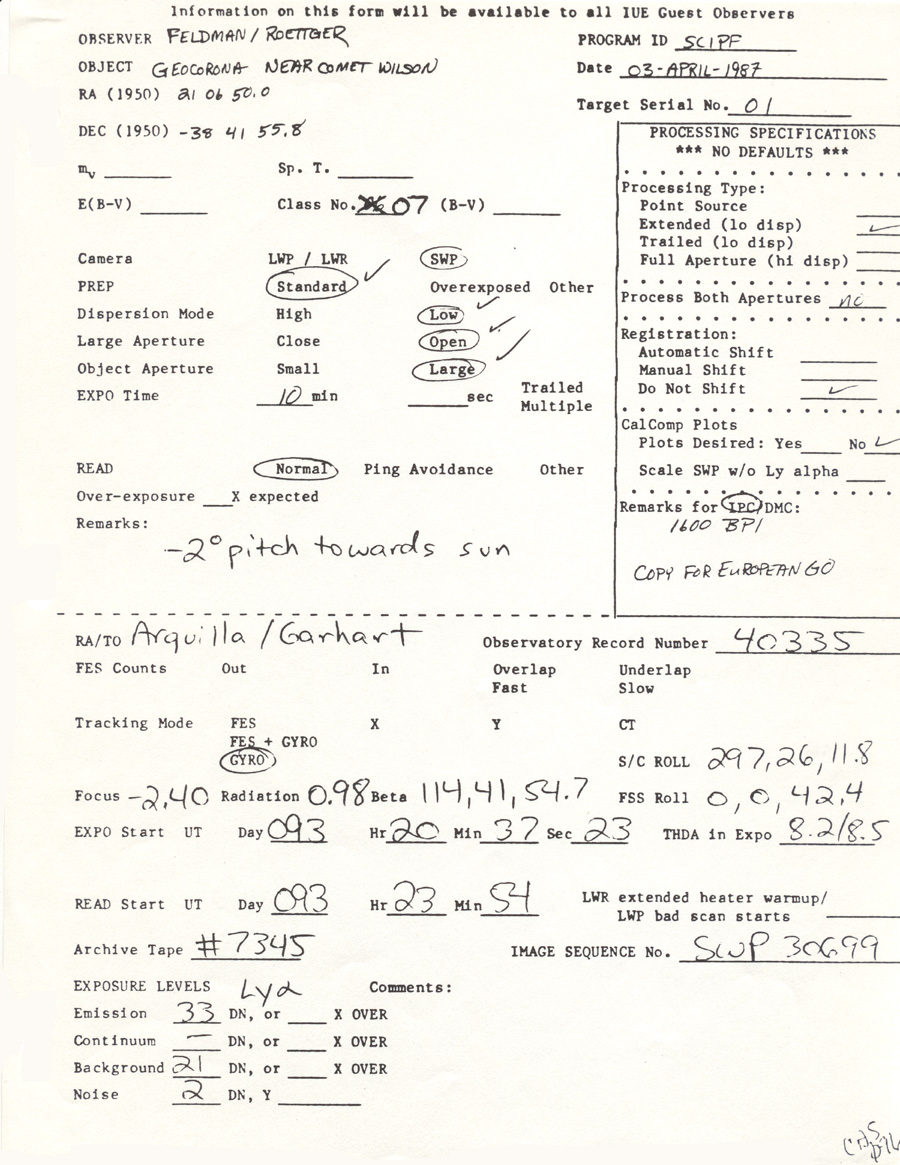 Information on this form will be available to all IUE Guest Observers
OBSERVER FELDMAN / ROETTGER
PROGRAM ID SCIPF
OBJECT GEOCORONA NEAR COMET WILSON
Date 03-APRIL-1987
RA (1950) 21 06 50.0
Target Serial No. 01
DEC (1950) -38 41 55.8
PROCESSING SPECIFICATIONS
*** NO DEFAULTS ***
mv Sp. T.
E(B-V) Class No. 07 (B-V)
Processing Type:
Point Source
Extended (lo disp) ✓
Trailed (lo disp)
Full Aperture (hi disp)
Process Both Apertures no
Registration:
Automatic Shift
Manual Shift
Do Not Shift ✓
CalComp Plots
Plots Desired: Yes No ✓
Scale SWP w/o Ly alpha
Remarks for IPC/DMC:
1600 BPI
COPY FOR EUROPEAN GO
Camera LWP / LWR SWP
PREP Standard ✓ Overexposed Other
Dispersion Mode High Low ✓
Large Aperture Close Open ✓
Object Aperture Small Large ✓
EXPO Time 10 min sec Trailed
Multiple
READ Normal Ping Avoidance Other
Over-exposure X expected
Remarks:
-2° pitch towards sun
RA/TO Arquilla/Garhart Observatory Record Number 40335
FES Counts Out In Overlap Underlap
Fast Slow
Tracking Mode FES X Y CT
FES + GYRO
GYRO
S/C ROLL 297,26,11.8
Focus -2.40 Radiation 0.98 Beta 114,41,54.7 FSS Roll 0,0,42.4
EXPO Start UT Day 093 Hr 20 Min 37 Sec 23 THDA in Expo 8.2/8.5
READ Start UT Day 093 Hr 23 Min 54 LWR extended heater warmup/
LWP bad scan starts
Archive Tape #7345 IMAGE SEQUENCE No. SWP 30699
EXPOSURE LEVELS Lyα Comments:
Emission 33 DN, or X OVER
Continuum — DN, or X OVER
Background 21 DN, or X OVER
Noise 2 DN, Y